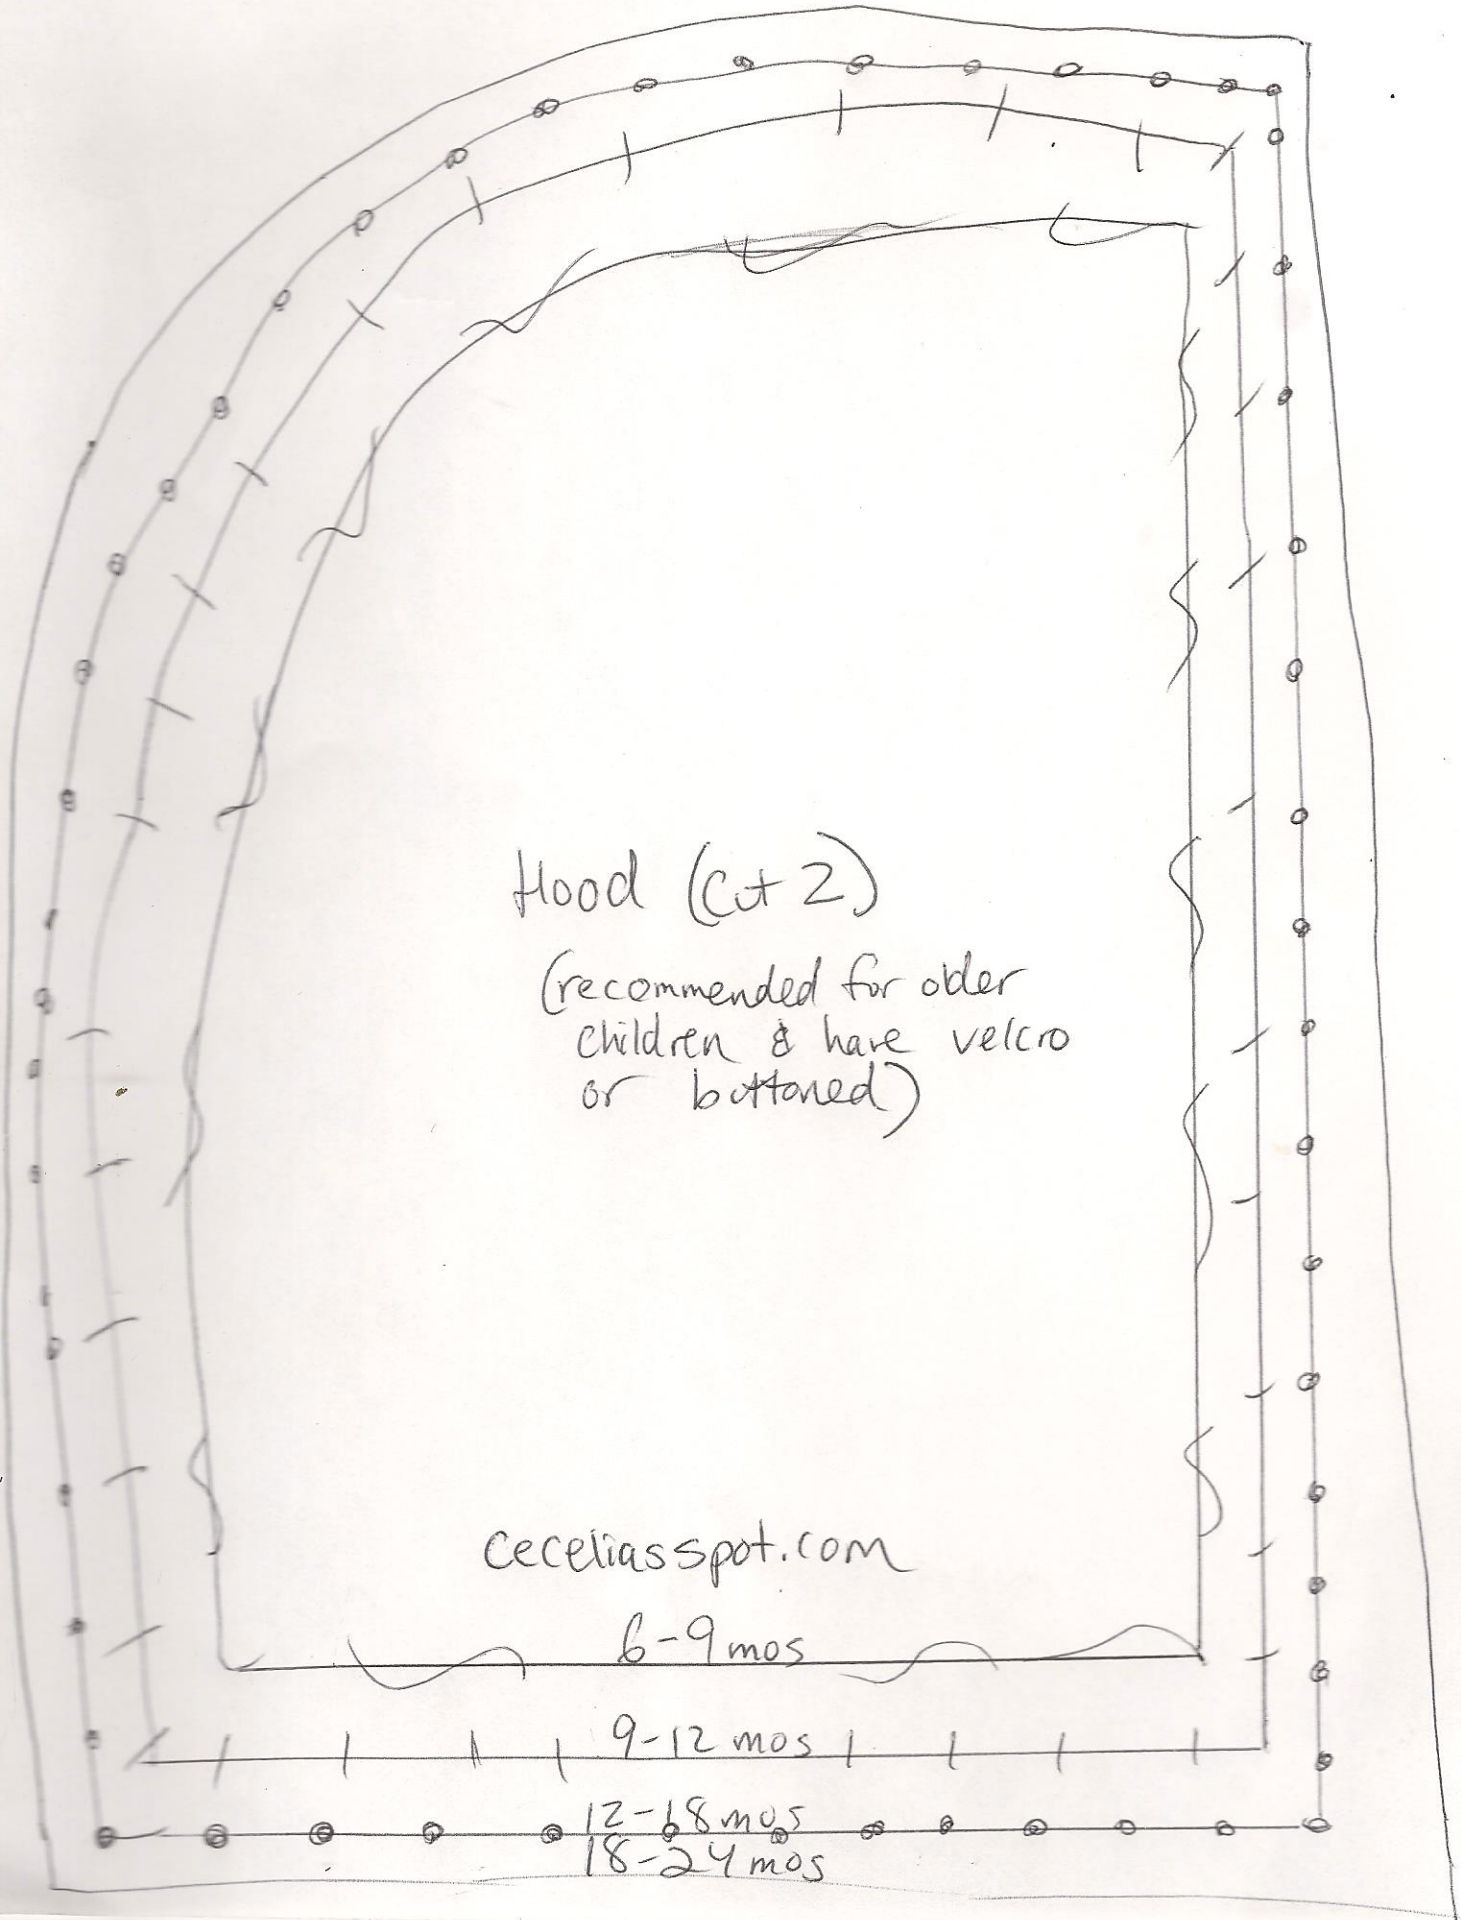 Hood (Cut 2)
(recommended for older
children & have velcro
or buttoned)
ceceliasspot.com
6-9 mos
9-12 mos
12-18 mos
18-24 mos